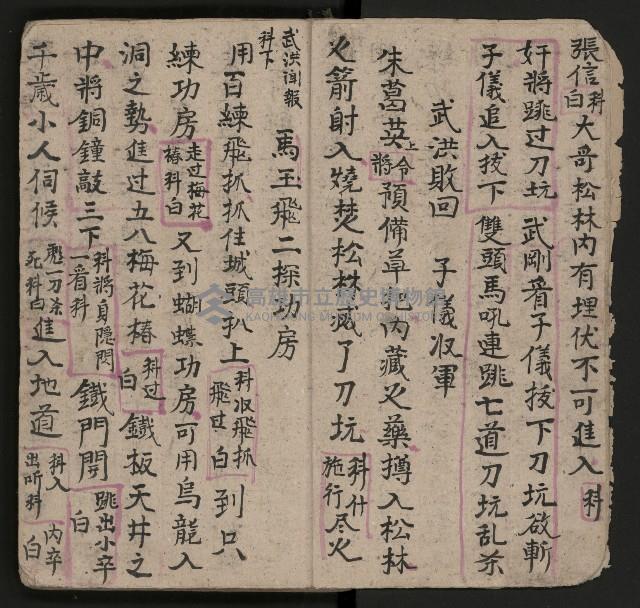 張信科白大哥松林內有埋伏不可進入科
奸將跳过刀坑 武剛看子儀拔下刀坑欲斬
子儀追入拔下 雙頭馬吼連跳七道刀坑乱杀
武洪敗回 子儀收軍
朱葛英上令將預備草 內藏火藥摶入松林
火箭射入燒焚松林滅了刀坑科什施行尽火
武洪聞報科下 馬玉飛二探功房
用百練飛抓抓住城頭扒上科收飛抓飛过白到只
練功房走过梅花樁科白又到蝴蝶功房可用烏龍入
洞之勢進过五八梅花樁科过白鐵板天井之
中將銅鐘敲三下科將身隱閃一看科鐵門開跳出小卒白
千歲小人伺候 一刀杀死科白進入地道科入出听科內卒白
高雄市立歷史博物館
KAOHSIUNG MUSEUM OF HISTORY